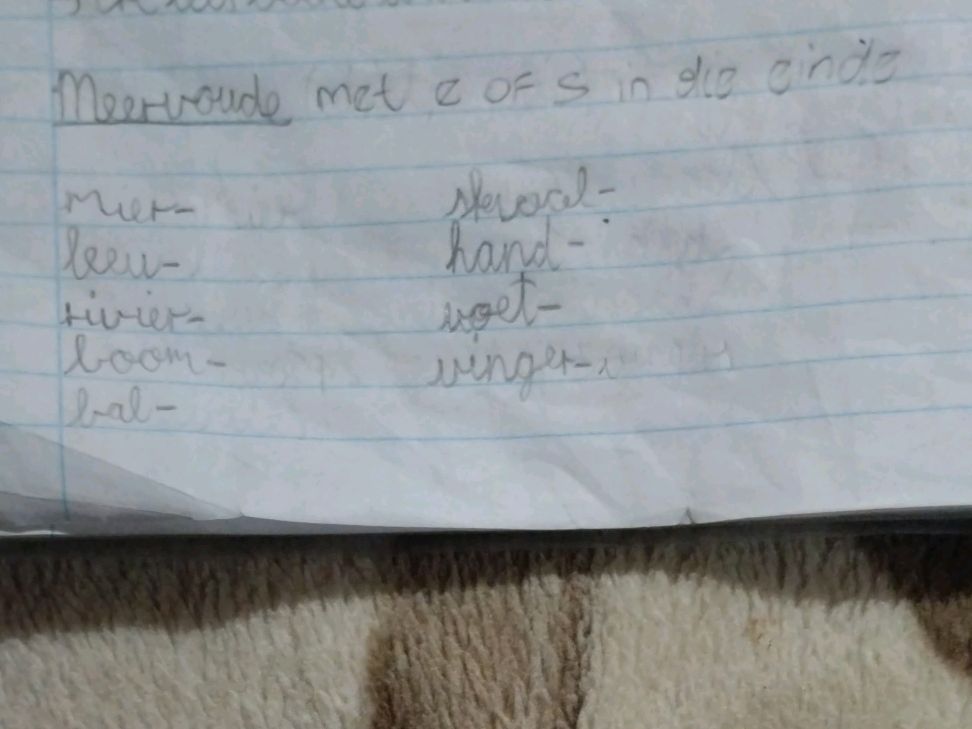 Meervoude met e of s in die einde
mier-
leeu-
rivier-
boom-
bal-
hand-
voet-
vinger-